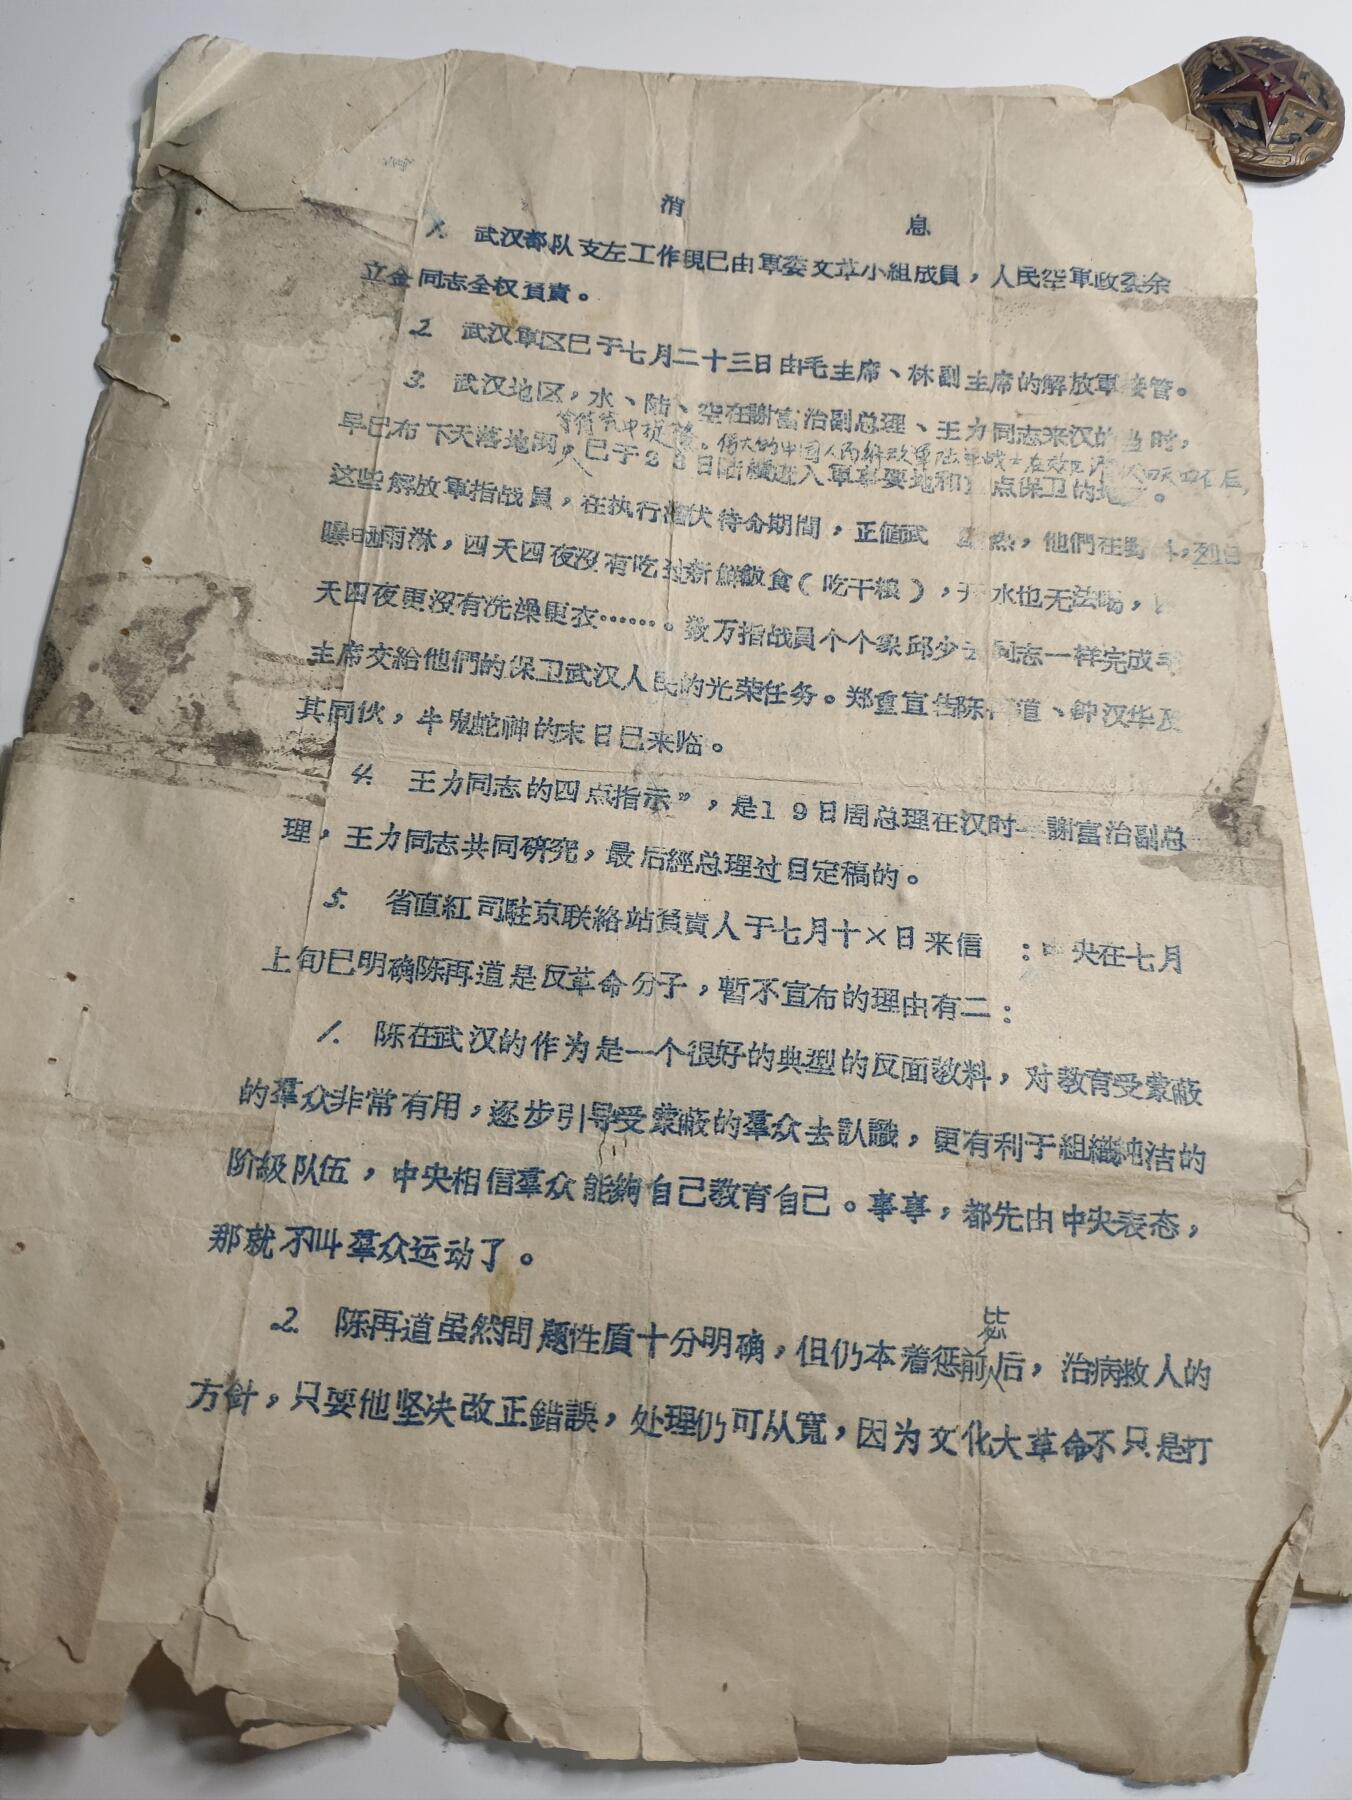 消 息
1. 武汉部队支左工作现已由軍委文革小組成員，人民空軍政委余
立金同志全权負責。
2. 武汉軍区已于七月二十三日由毛主席、林副主席的解放軍接管。
3. 武汉地区，水、陆、空在謝富治副总理、王力同志来汉的当时，
伟大的中国人民解放軍陆軍战士在效区潜伏四天四夜后，
早已布下天落地网，已于23日陆續进入軍事要地和 点保卫的地 。
这些解放軍指战員，在执行潛伏待命期間，正值武 热，他們在野 ，烈日
曝晒雨淋，四天四夜沒有吃 新鮮飯食(吃干粮)，开水也无法喝，
天四夜更沒有洗澡更衣……。数万指战員个个象邱少云同志一样完成毛
主席交給他們的保卫武汉人民的光荣任务。郑重宣告陈 道、钟汉华及
其同伙，牛鬼蛇神的末日已来临。
4. 王力同志的四点指示”，是19日周总理在汉时 謝富治副总
理，王力同志共同研究，最后經总理过目定稿的。
5. 省直紅司駐京联絡站負責人于七月十×日来信 ：中央在七月
上旬已明确陈再道是反革命分子，暫不宣布的理由有二：
1. 陈在武汉的作为是一个很好的典型的反面教料，对教育受蒙蔽
的羣众非常有用，逐步引导受蒙蔽的羣众去認識，更有利于組織純洁的
阶級队伍，中央相信羣众能夠自己教育自己。事事，都先由中央表态，
那就不叫羣众运动了。
2. 陈再道虽然問題性质十分明确，但仍本着惩前毖后，治病救人的
方針，只要他坚决改正錯誤，处理仍可从寬，因为文化大革命不只是打